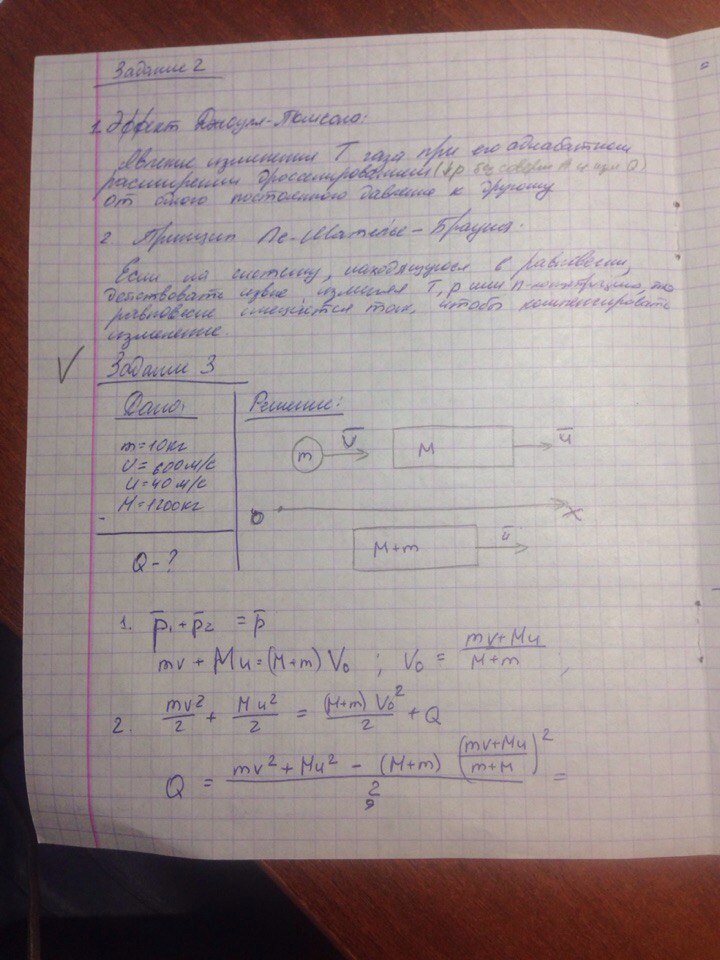 Задание 2
1. Эффект Джоуля-Томсона:
Явление изменения T газа при его адиабатном
расширении дросселированием (↓p без соверш A и изм Q)
от одного постоянного давления к другому
2. Принцип Ле-Шателье-Брауна.
Если на систему, находящуюся в равновесии,
действовать извне изменяя T, p или n-концентрацию, то
равновесие смещается так, чтобы компенсировать
изменение.
√ Задание 3
Дано: Решение:
m=10кг
V=600м/с
u=40м/с
M=1200кг
Q-?
m V̅ M u̅
0 X
M+m u̅
1. p̅₁+p̅₂ = p̅
mv + Mu = (M+m) V₀ ; V₀ = (mv+Mu)/(M+m),
2. mv²/2 + Mu²/2 = (M+m)V₀²/2 + Q
Q = (mv²+Mu² - (M+m) ((mv+Mu)/(m+M))²)/2 =